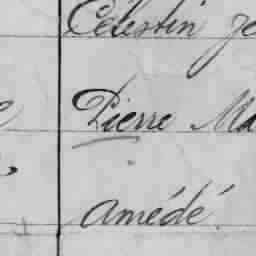 Célestin
Pierre Ma
Amédé